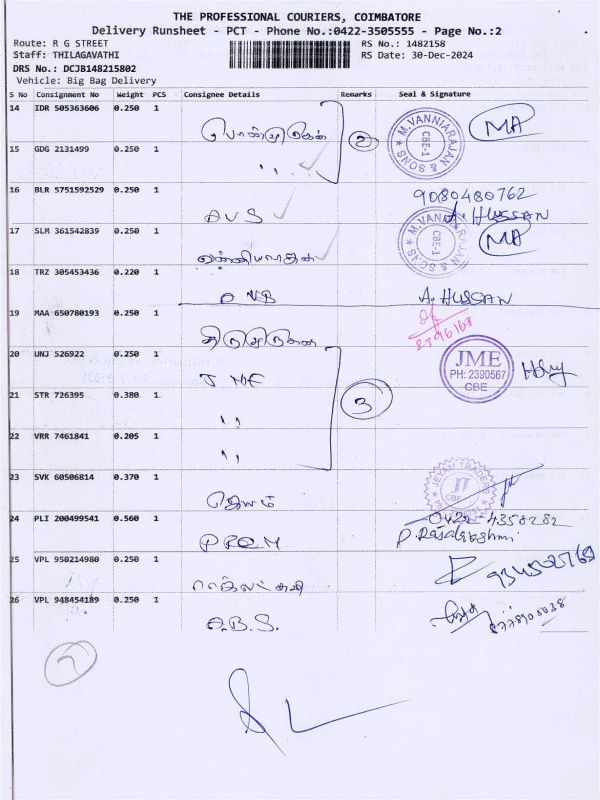 THE PROFESSIONAL COURIERS, COIMBATORE
Delivery Runsheet - PCT - Phone No.:0422-3505555 - Page No.:2
Route: R G STREET RS No.: 1482158
Staff: THILAGAVATHI RS Date: 30-Dec-2024
DRS No.: DCJB148215802
Vehicle: Big Bag Delivery
S No Consignment No Weight PCS Consignee Details Remarks Seal & Signature
14 IDR 505363606 0.250 1
M.VANNIARAJAN & SONS CBE-1 MA
2
15 GDG 2131499 0.250 1 ,,
16 BLR 5751592529 0.250 1 AVS 9080480762
A. HUSSAN
17 SLM 361542839 0.250 1 M.VANNIARAJAN & SONS CBE-1 MA
18 TRZ 305453436 0.220 1 A. HUSSAN
19 MAA 650780193 0.250 1
20 UNJ 526922 0.250 1 JME JME
PH: 2380567
CBE
21 STR 726395 0.380 1 ,, 3
22 VRR 7461841 0.205 1 ,,
23 SVK 60506814 0.370 1 ஜெயம் JEYAM TRADERS JT CBE
24 PLI 200499541 0.560 1 0422-4358282
25 VPL 950214980 0.250 1
26 VPL 948454189 0.250 1 A.B.S.